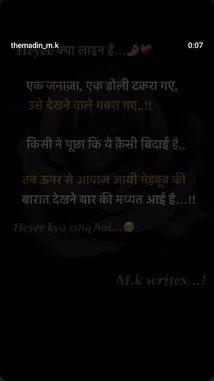 themadin_m.k
0:07
Heyee क्या लाइन है...🤌❤️
एक जनाज़ा, एक डोली टकरा गए,
उसे देखने वाले गबरा गए,.!!
किसी ने पूछा कि ये क़ैसी बिदाई है,,
तब ऊपर से आवाज़ आयी मेहबूब की
बारात देखने यार की मय्यत आई है...!!
Heyee kya ishq hai...🥺
M.k writes...!